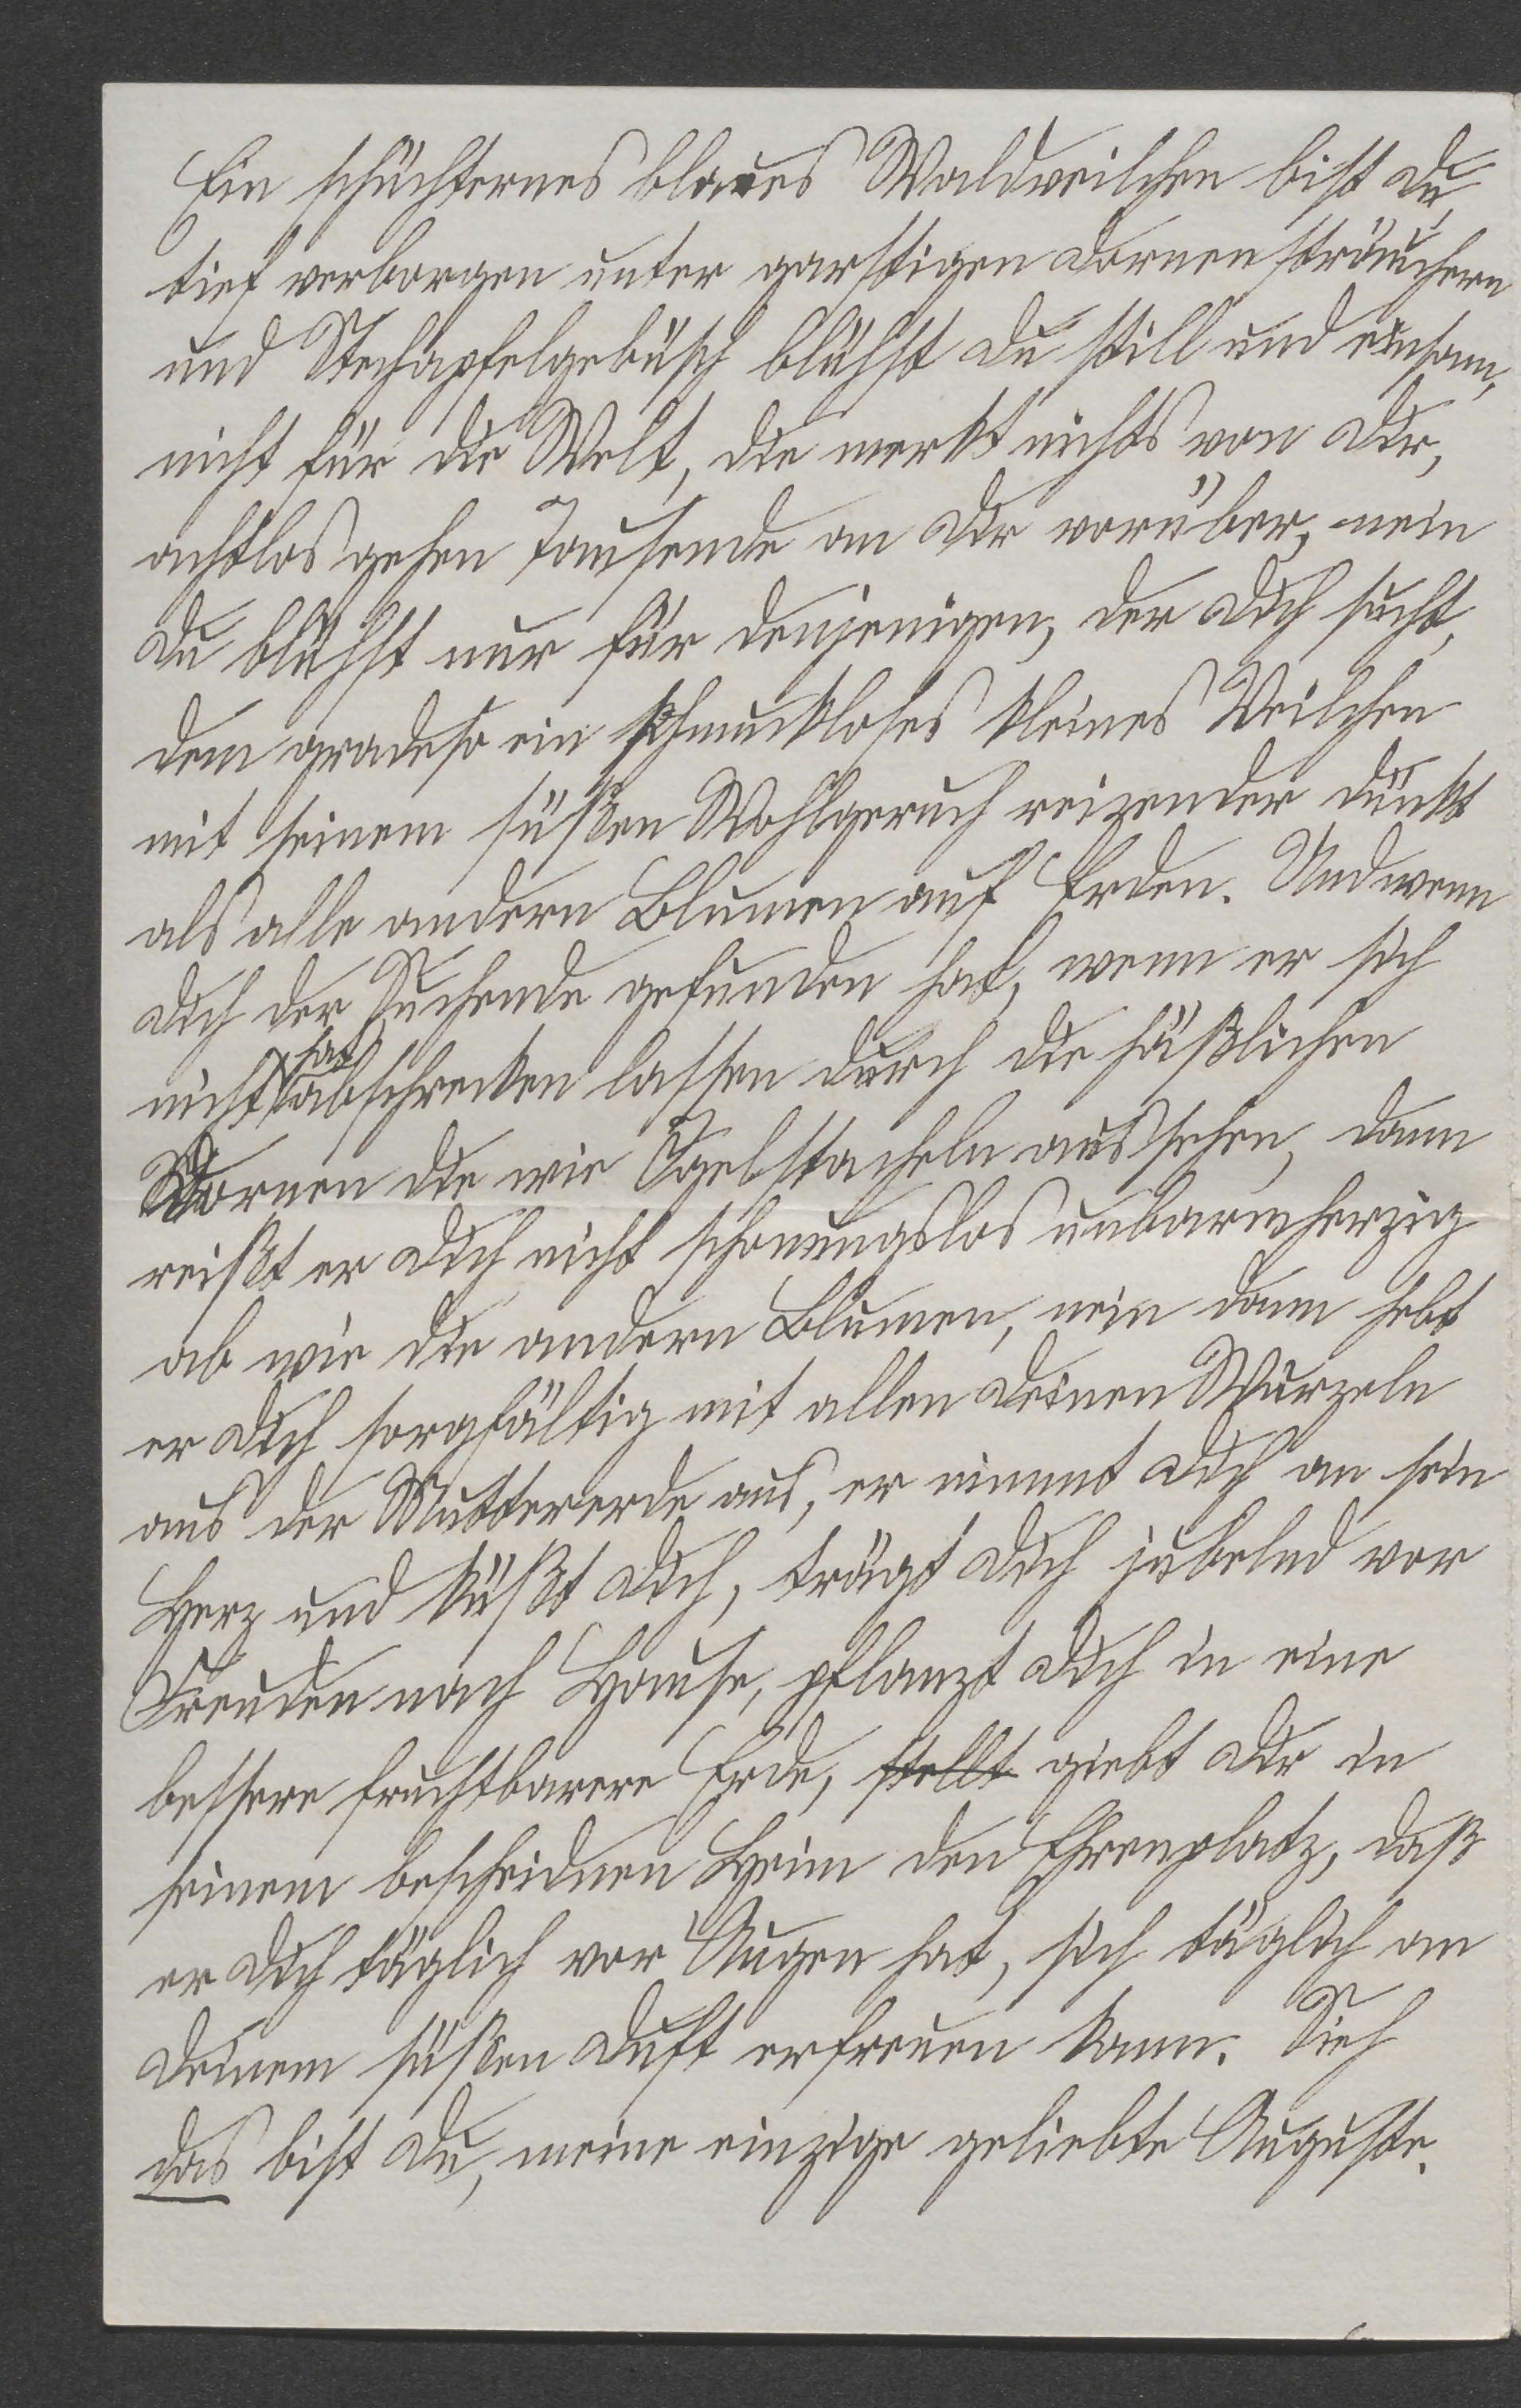 Ein schüchternes blaues Waldveilchen bist Du,
tief verborgen unter garstigen Dornensträuchern
und Stechapfelgebüsch blühst Du still und einsam,
nicht für die Welt, die merkt nichts von Dir,
achtlos gehen Tausende an Dir vorüber, nein
Du blühst nur für denjenigen, der Dich sucht,
dem gradeso ein schmuckloses kleines Veilchen
mit seinem süßen Wohlgeruch reizender dünkt
als alle andern Blumen auf Erden. Und wenn
Dich der Suchende gefunden hat, wenn er sich
nicht hat abschrecken lassen durch die häßlichen
Dornen die wie Igelstacheln aussehen, dann
reißt er Dich nicht schonungslos unbarmherzig
ab wie die andern Blumen, nein dann hebt
er Dich sorgfältig mit allen Deinen Wurzeln
aus der Muttererde aus, er nimmt Dich an sein
Herz und küßt Dich, trägt Dich jubelnd vor
Freuden nach Hause, pflanzt Dich in eine
bessere fruchtbarere Erde, stellt giebt Dir in
seinem bescheidnen Heim den Ehrenplatz, daß
er Dich täglich vor Augen hat, sich täglich an
Deinem süßen Duft erfreuen kann. Sieh
das bist Du, meine einzige geliebte Auguste.